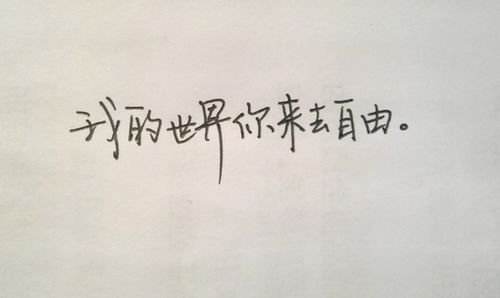 我的世界你来去自由。